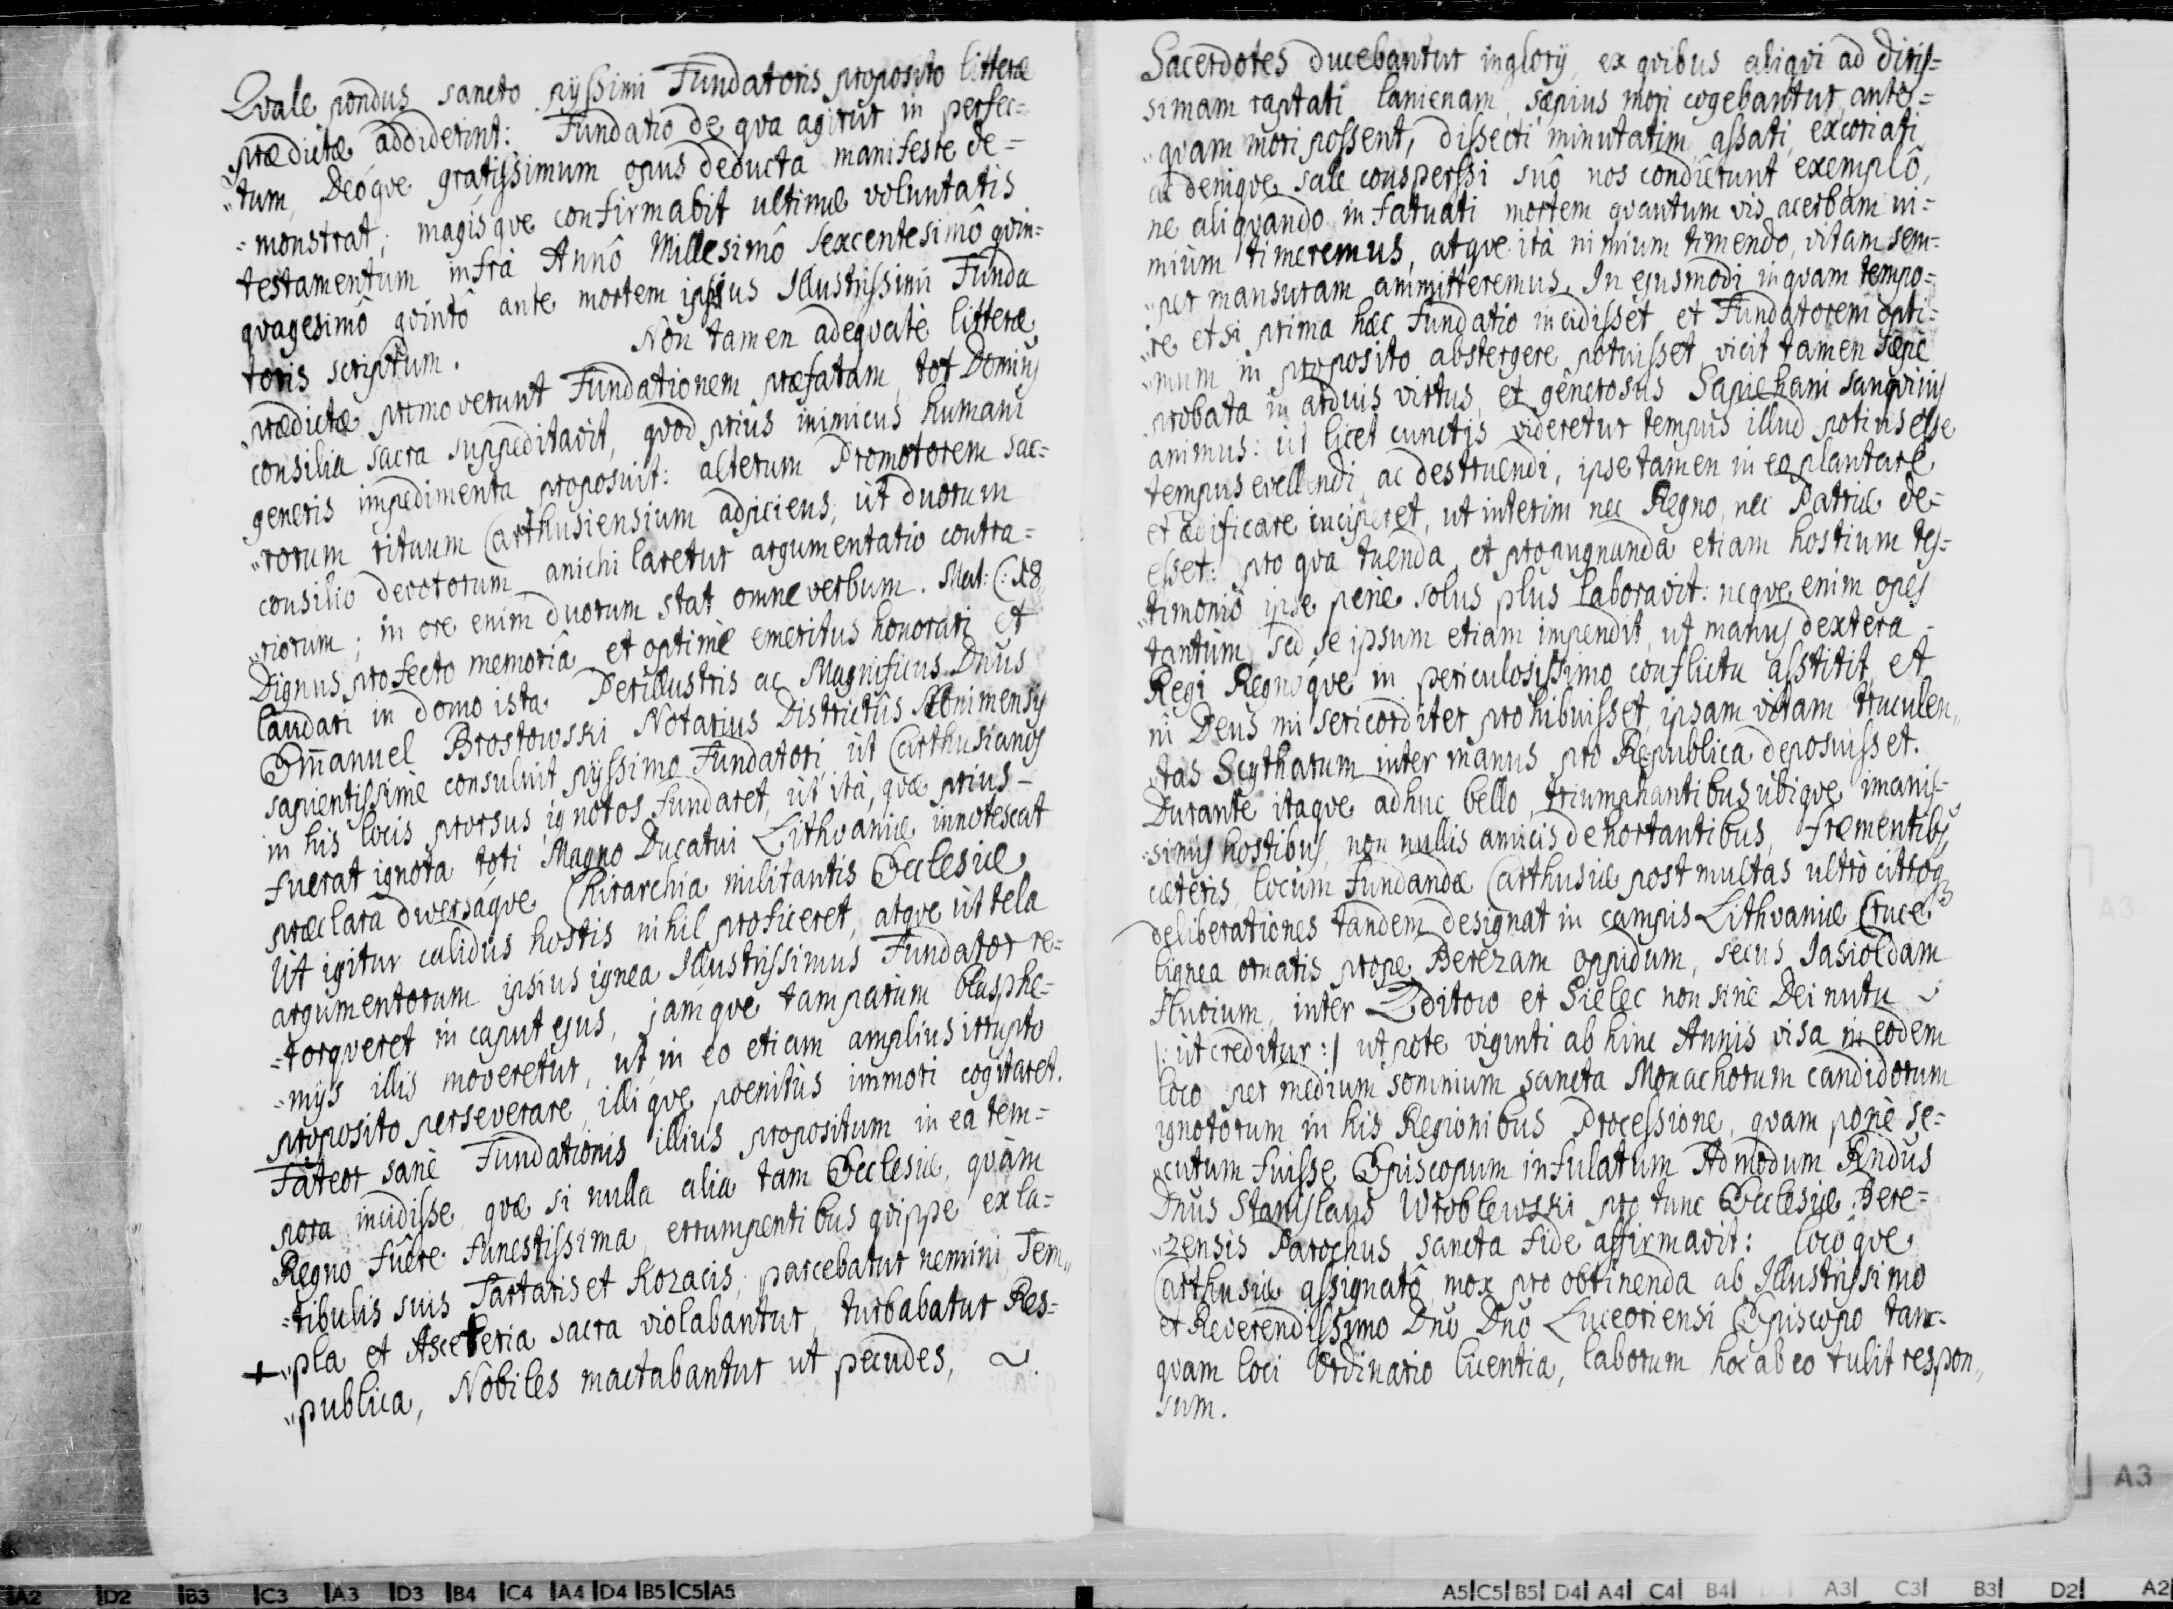 Qvale pondus sancto pijssimi Fundatoris proposito litteræ
prædictæ addiderint: Fundatio de qva agitur in perfec=
"tum, Deóqve gratissimum opus deducta manifeste de=
=monstrat; magisqve confirmabit ultimæ voluntatis
testamentum infrà Annô Millesimô sexcentesimô qvin=
qvagesimô qvintô ante mortem ipsius Illustrissimi Funda
toris scriptum. Non tamen adeqvatè litteræ
prædictæ primoverunt Fundationem præfatam, tot Dominus
consilia sacra suppeditavit, qvod priùs inimicus humani
generis impedimenta proposuit: alterum Promotorem sac=
"rorum rituum Carthusiensium adjiciens, ùt duorum
consilio devotorum anichilaretur argumentatio contra=
"riorum; in ore enim duorum stat omne verbum. Mat: C: 18
Dignus profecto memoriâ et optimè emeritus honorari et
laudari in domo ista. Perillustris ac Magnificus Dnus
Emanuel Brostowski Notarius Districtûs Slonimensis
sapientissimè consuluit pijssimo Fundatori ùt Carthusianos
in his locis prorsus ignotos fundaret, ùt ità, qvæ prius-
fuerat ignota toti Magno Ducatui Lithvaniæ innotescat
præclara diversáqve Chirarchia militantis Ecclesiæ
Ùt igitur calidus hostis nihil proficeret, atqve ùt tela
argumentorum ipsius ignea Illustrissimus Fundator re=
=torqveret in caput ejus, jamqve tamparum blasphe=
"mijs illis moveretur, ut in eo etiam amplius irrupto
proposito perseverare, illiqve poenitùs immori cogitaret.
Fateor sanè Fundationis illius propositum in ea tem=
pora incidisse qvæ si nulla alia tam Ecclesiæ, qvàm
Regno fuêre funestissima, errumpentibus qvippe ex la=
=tibulis suis Tartaris et Kozacis, parcebatur nemini Tem,,
+ "pla et Asceteria sacra violabantur, turbabatur Res=
"publica, Nobiles mactabantur ut pecudes,
Sacerdotes ducebantur inglorij, ex qvibus aliqvi ad diris=
simam raptati lanienam, sæpius mori cogebantur, ante=
"qvam mori possent, dissecti minutatim, assati, excoriati
ac deniqve sale conspersi suô nos condiêrunt exemplô,
ne aliqvando infatuati mortem qvantumvis acerbam ni=
mium timeremus, atqve ità nimium timendo, vitam sem=
"per mansuram ammitteremus. In ejusmodi inqvam tempo=
"re etsi prima hæc Fundatio incidisset, et Fundatorem opti=
"mum in proposito abstergere potuisset, vicit tamen sæpè
probata in arduis virtus, et generosus Sapiehani sangvinis
animus: ùt licet cunctis videretur tempus illud potius esse
tempus evellendi ac destruendi, ipse tamen in eo plantare
et ædificare inciperet, ut interim nec Regno, nec Patriæ de=
esset: pro qva tuenda et propugnanda etiam hostium tes=
"timoniô ipse penè solus plus laboravit: neqve enim opes
tantùm, sed se ipsum etiam impendit, ut manus dextera
Regi Regnóqve in periculosissimo conflictu asstitit, et
ni Deus misericorditer prohibuisset, ipsam vitam truculen,,
"tas Scytharum inter manus pro Republica deposuisset.
Durante itaqve adhuc bello, triumphantibus ubiqve imanis=
"simis hostibus, non nullis amicis dehortantibus, frementibus
cæteris, locum fundandæ Carthusiæ post multas ultrò citroq3
deliberationes tandem designat in campis Lithvaniæ Cruce
lignea ornatis prope Berezam oppidum, secus Jasioldam
Fluvium, inter Zditow et Sielec non sine Dei nutu
/: ùt creditur :/ utpote viginti abhinc Annis visa in eodem
loco per medium somnium sancta Monachorum candidorum
ignotorum in his Regionibus Processione, qvam ponè se=
"cutum fuisse Episcopum infulatum Admodum Rndus
Dnus Stanislaus Wroblewski pro tunc Ecclesiæ Bere=
"zensis Parochus sancta fide affirmavit: locóqve
Carthusiæ assignatô mox pro obtinenda ab Illustrissimo
et Reverendissimo Dnô Dnô Luceoriensi Episcopo tan=
qvam loci Ordinario licentia, laborum hoc ab eo tulit respon,,
sum.